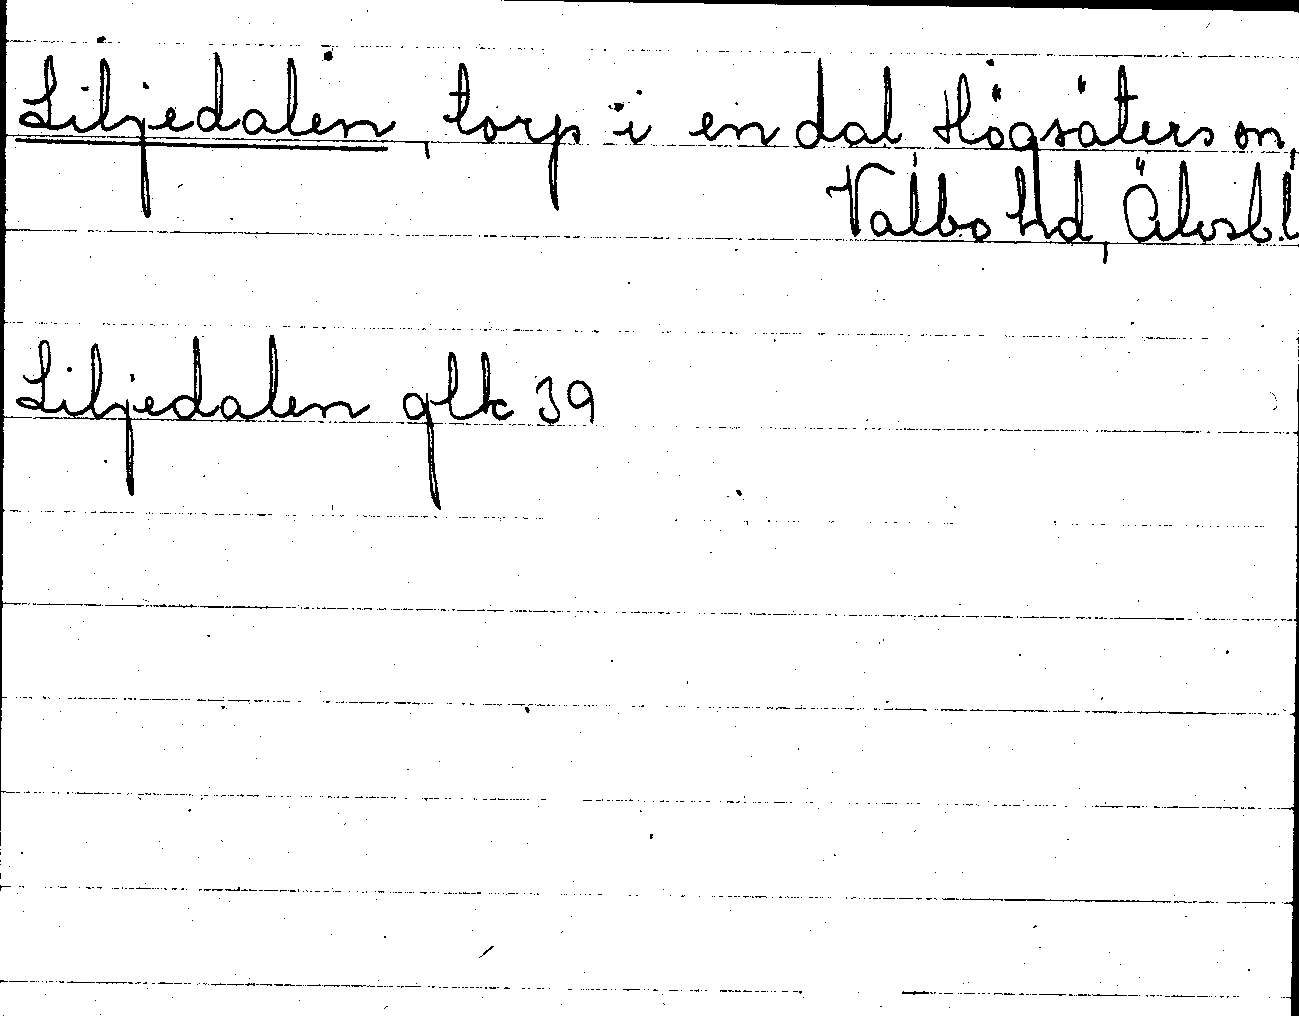 Liljedalen, torp i en dal Högsäters sn,
Valbo hd, Älvsb.l
Liljedalen glk 39